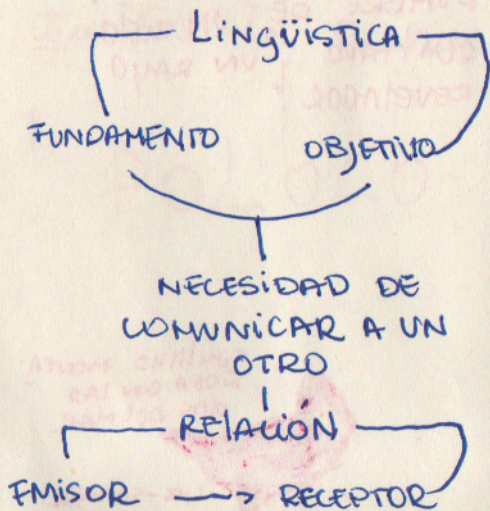 LINGÜISTICA
FUNDAMENTO OBJETIVO
NECESIDAD DE
COMUNICAR A UN
OTRO
RELACIÓN
EMISOR RECEPTOR